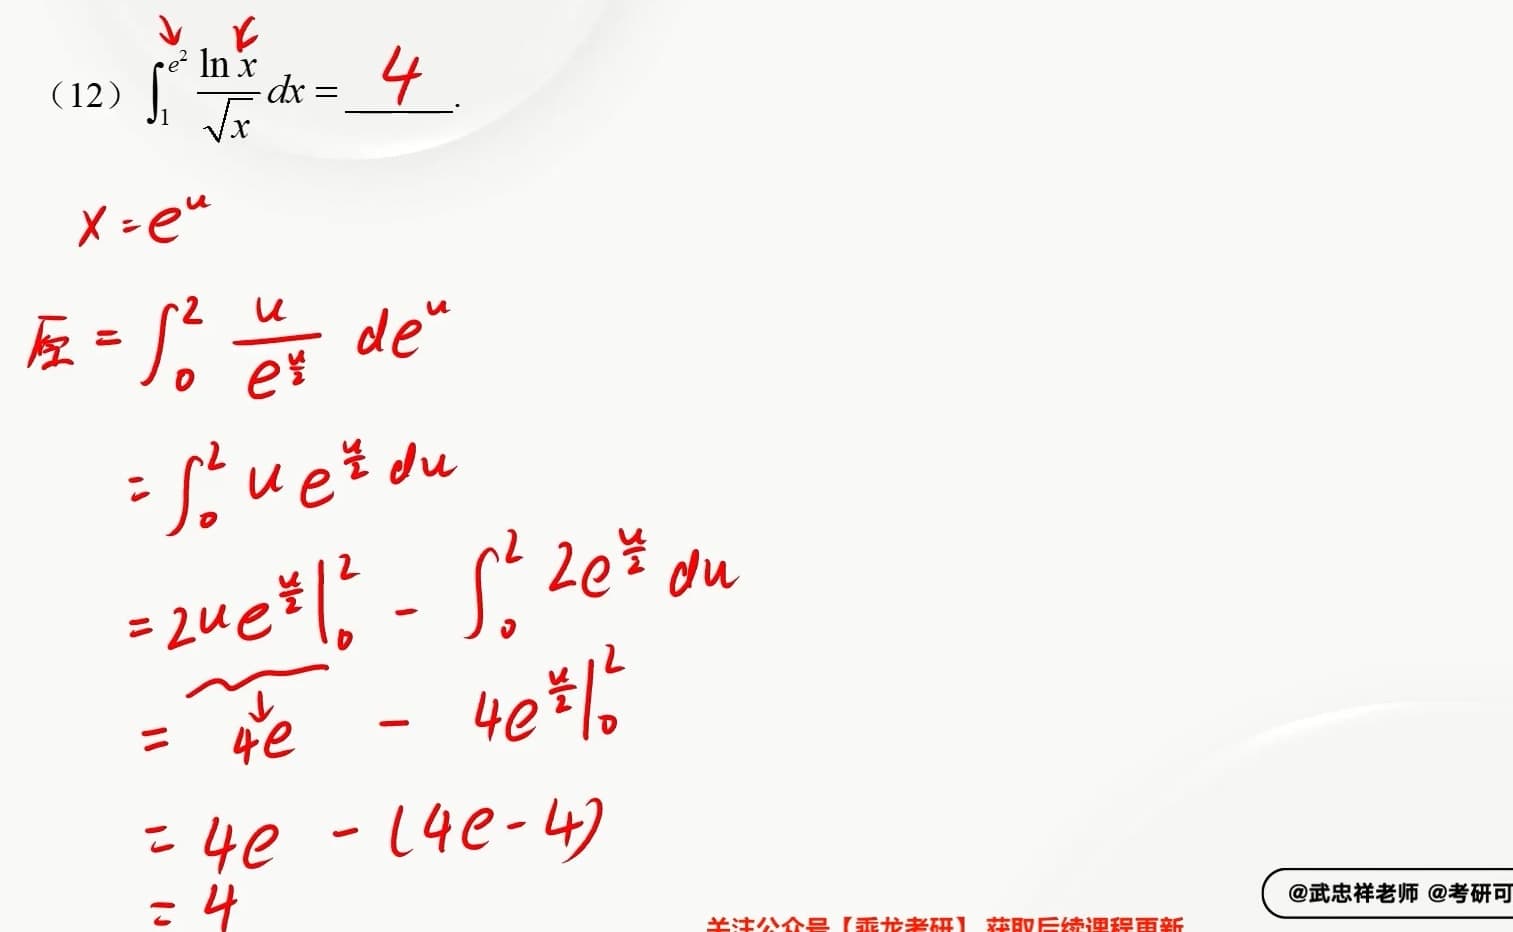 (12) ∫₁^{e²} ln x / √x dx = 4 .
x = e^u
原 = ∫₀² u / e^{u/2} de^u
= ∫₀² u e^{u/2} du
= 2u e^{u/2} |₀² - ∫₀² 2e^{u/2} du
= 4e - 4e^{u/2} |₀²
= 4e - (4e - 4)
= 4
@武忠祥老师 @考研可
关注公众号【乘龙考研】 获取后续课程更新